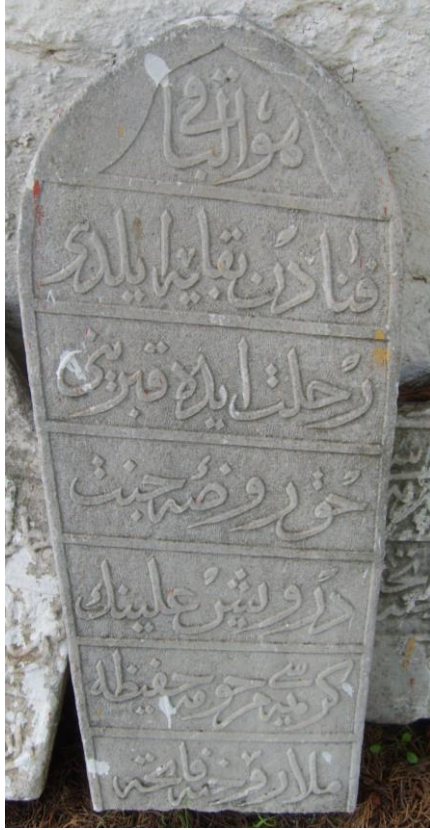 هو الباقی
فنادن بقایه ایلدی
رحلت ایده قبرینی
حق روضه جنت
درویش علینك
كریمه سی مرحومه حفیظه
ملا روحنه فاتحه